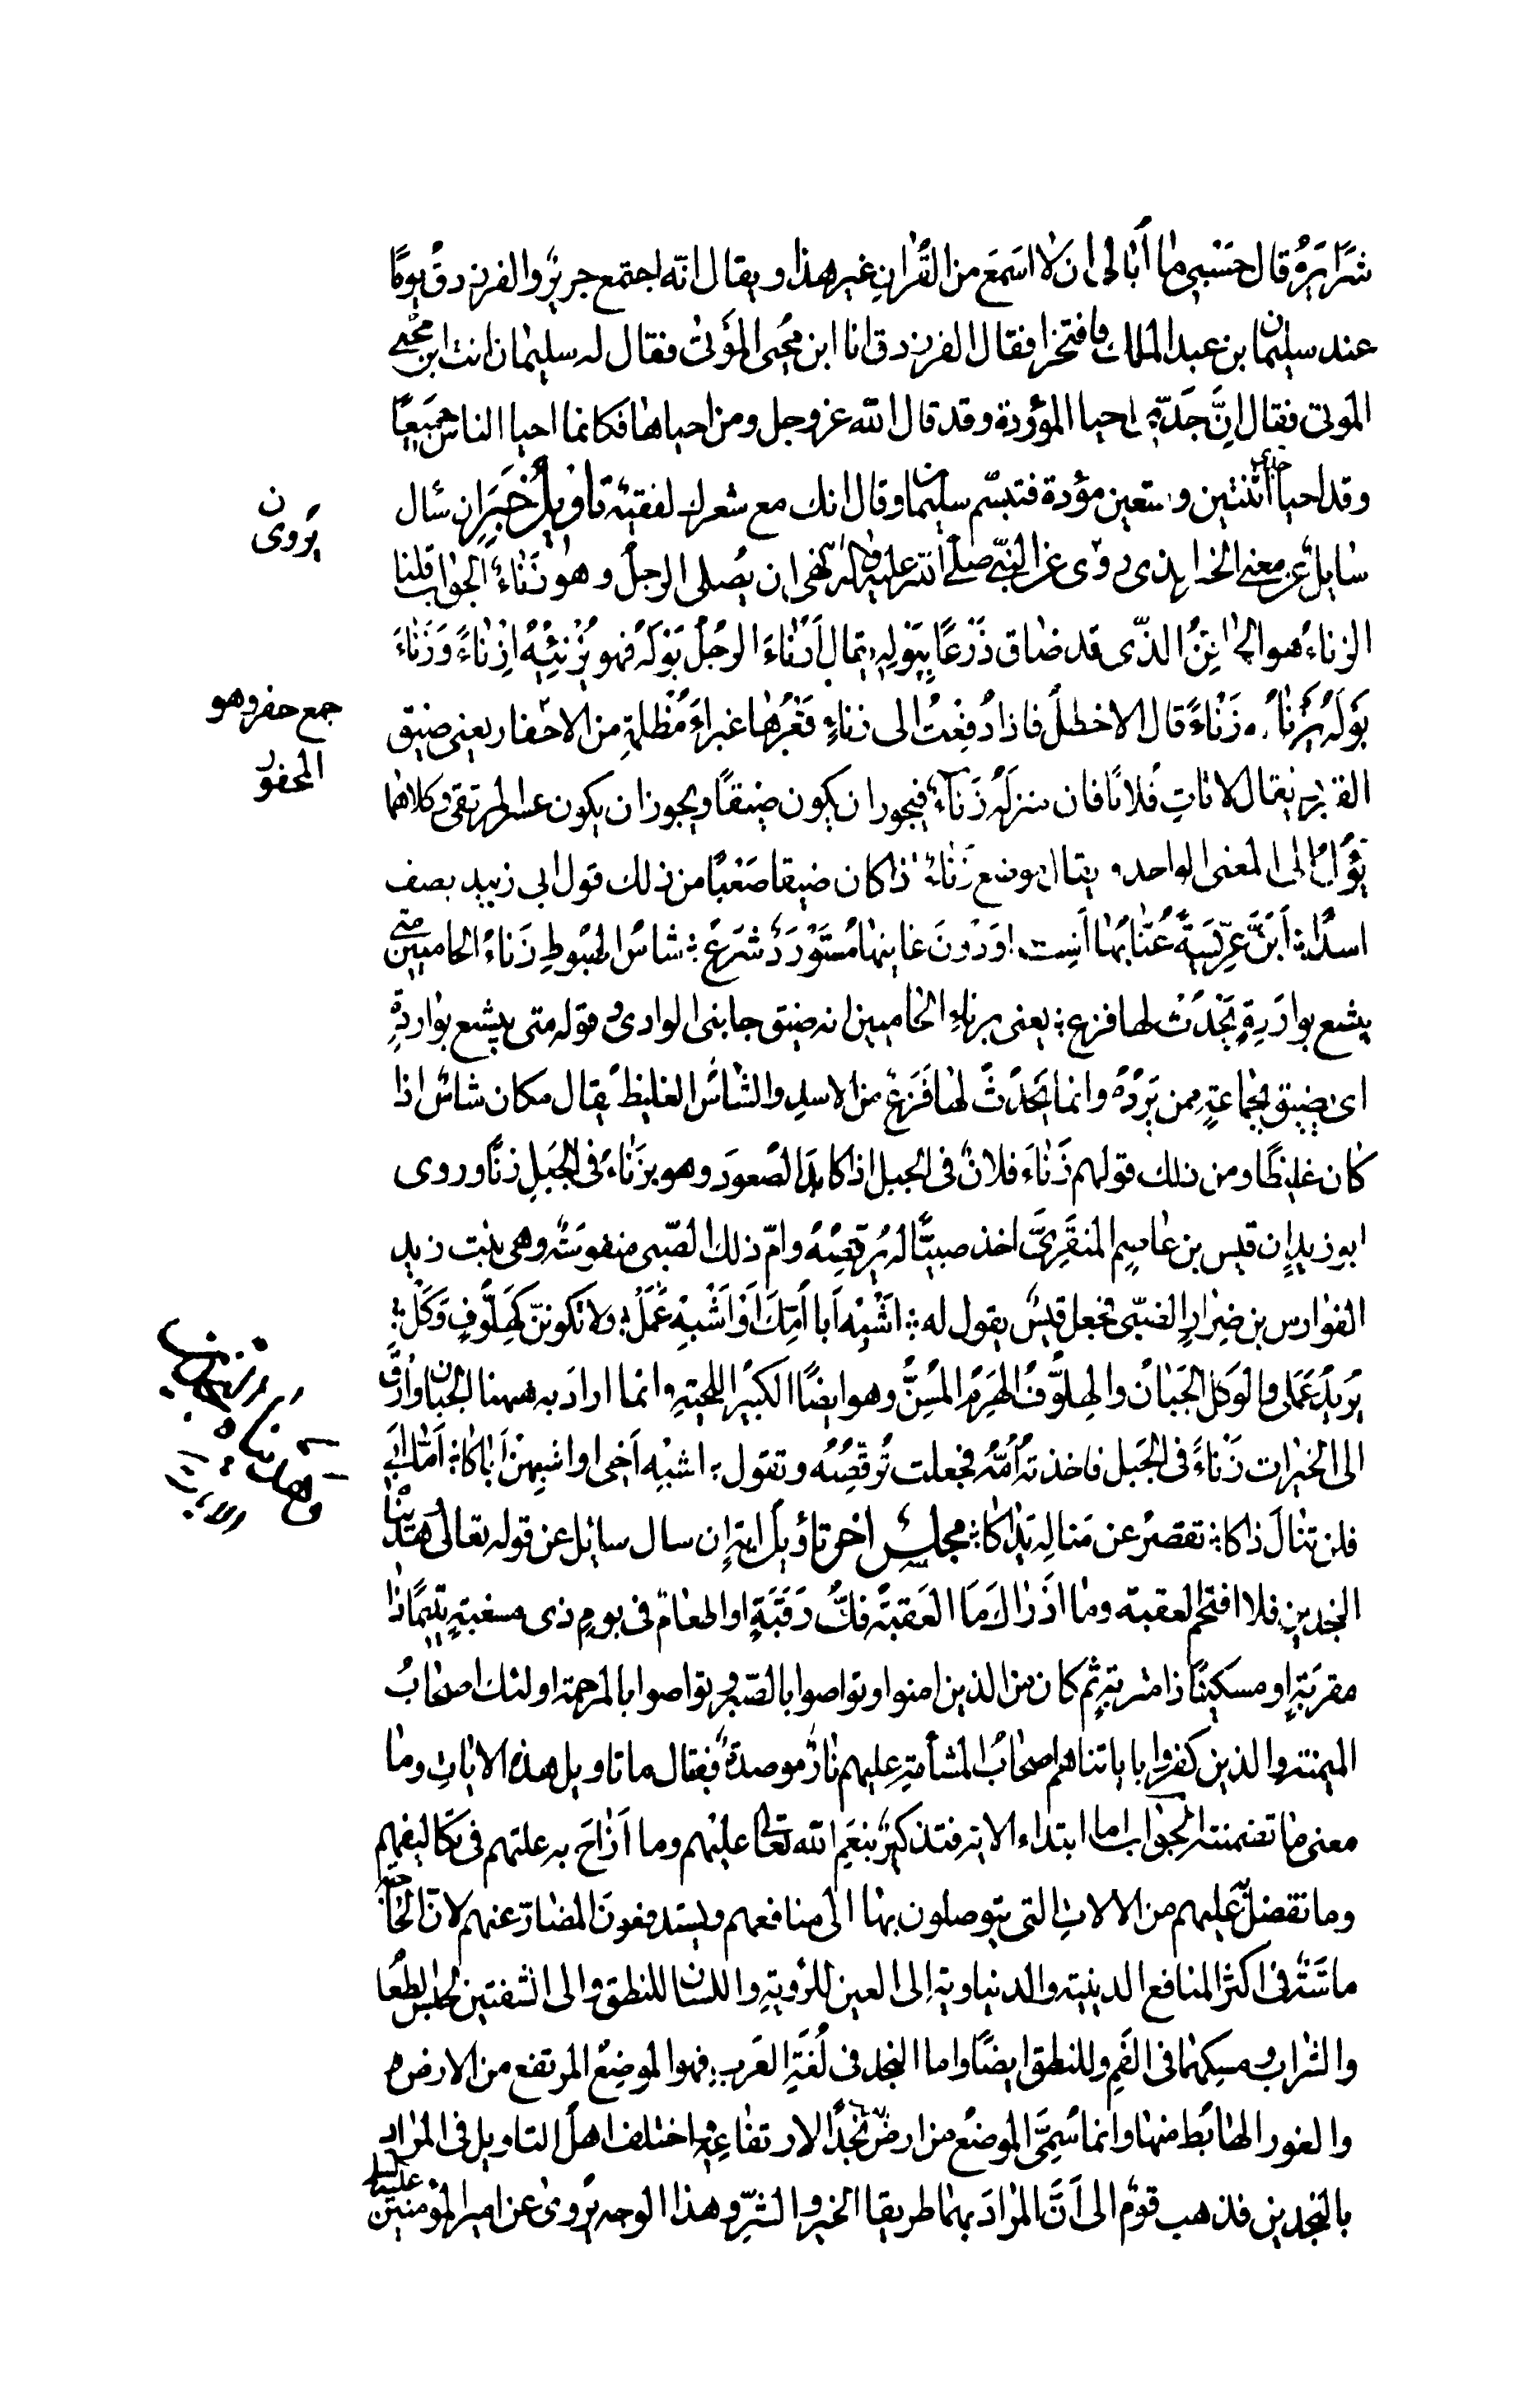 شرًّا يَرَهُ قال حَسْبي ما أُبالى ان لا اسمَعَ من القُرانِ غير هذا ويقال انّه اجتمع جريرٌ والفرزدقُ يومًا
عند سليمان بن عبد الملك فافتخرا فقال الفرزدق انا ابن مُحيى الموتى فقال له سليمان انت ابن محيى
الموتى فقال اِنَّ جدّى احيا الموؤدة وقد قال الله عز وجل ومن احياها فكانما احيا الناس جميعًا
وقد احيا جدى اثنتين وتسعين موؤدة فتبسّم سليمان وقال انك مع شعرك لفقيهٌ تاويلُ خَبَرٍ ان سأل
سايلٌ عن معنى الخبر الذى روى عن النبى صلى الله عليه واله نهى ان يُصلى الرجلُ وهو زَنَاءٌ الجواب قلنا
الزناءُ هو الحاقِنُ الذّى قد ضاق ذَرْعًا بِبَوْلِهِ يقال أزناءَ الرجُلُ بَوْلَهُ فهو يُزْنِئُهُ اِزْناءً وَزَنَاءَ
بَوْلَهُ يَزْنَاءُ زَنَاءً قال الاخطلُ فاذا دُفِعْتُ الى زناءٍ قَعْرُها غبراءَ مُظْلِمَةٍ من الاحفار يعنى ضيق
القبر يقال لا تاتِ فُلانًا فان منزلَهُ زَنَاءٌ فيجوز ان يكون ضيقًا ويجوز ان يكون عسر المرتقى وكلاهما
يَؤُلُ الى المعنى الواحد ويقال موضع زَنَاءٌ اذا كان ضيقا صَعْبًا من ذلك قول ابى زبيد يصف
اسدًا أَبَنَّ عِرِّيسَةً عُنّابُها اَشِبٌ ودُونَ غايتها مُسْتَوْرَدٌ شَرَعٌ شاسُ الهُبُوطِ زَناءُ الحاميين متى
يشع بوارَدِةٍ يَحْدُثْ لها فزع يعنى بزناء الحاميين انه ضيق جانبى الوادى وقوله متى يشع بواردةٍ
اى يضيق بجماعةٍ ممن يَرِدُهُ وانما يَحْدُثُ لها فَزَعٌ من الاسد والشاسُ الغليظُ يقال مكان شاسٌ اذا
كان غليظًا ومن ذلك قولهم زَنَاءَ فلانٌ فى الجبل اذا كابَدَ الصُعودَ وهو يزنَاءُ فى الجبلِ زنًا وروى
ابو زيدٍ ان قيس بن عاصِم المنقَرِىَّ اخذ صبيًّا له يُرقِصُهُ وامّ ذلك الصّبى منفوسَةٌ وهى بنت زيد
الفوارس بن ضِرارٍ الضبّى فجعل قيسٌ يقول له اَشْبِهْ اَبا اُمِّكَ اَوْ اَشْبِهْ عَمَلْ ولا تكوننّ كَهِلَّوْفٍ وَكَلْ
يُريدُ عَمَلى والوَكلُ الجَبانُ والهِلَّوْفُ الهَرِمُ المُسِنُّ وهو ايضًا الكبيرُ اللحيةِ وانما ارادَ به ههنا الجَبانَ وارْقَ
الى الخيرات زَنْاءً فى الجَبل فاخذته اُمُّهُ فجعلت تُرقِصُهُ وتقول اشبِه اَخى او اشبِهنْ اَباكا اَمّا اَبى
فلن تنالَ ذاكا تقصرُ عن مَنالِه يَداكا مجلس اخر تاؤيل ايةٍ ان سال سايل عن قوله تعالى وهَدَيْناهُ
النجدين فلا اقتحم العقبة وما اَدْراكَ مَا العَقبَةُ فكُّ رَقَبَةٍ او اطعام فى يومٍ ذى مسغبةٍ يتيمًا ذا
مقرَبَةٍ او مسكينًا ذا متربةٍ ثم كان من الذين امنوا وتواصوا بالصّبر وتواصوا بالمرحمة اولئك اصحابُ
الميمنة والذين كفروا باياتنا هم اصحابُ المشأمةِ عليهم نارٌ موصدةٌ فقال ما تاويل هذه الاياتِ وما
معنى ما تضمنته الجواب اما ابتداء الاية فتذكيرٌ بنعَمِ الله تعالى عليهم وما اَزاحَ به علتهم فى تكاليفهم
وما تفضلّ عليهم من الالاتِ التى يتوصلون بها الى منافعهم ويستدفعونَ المضارّ عنهم لانّ الحاجة
ماسّةٌ فى اكثر المنافع الدينية والدنياوية اِلى العين للرؤيةِ واللسان للنطق والى الشفتين لحبس الطعام
والشراب ومسكهما فى الفَمِ وللنطق ايضًا واما النجد فى لُغَةِ العَرب فهو الموضِعُ المرتفع من الارض
والغور الهابُط منها وانما سُمِّىَ الموضعُ من ارض نجدًا لارتفاعِهِ واختلف اهلُ التاويل فى المراد
بالنجدين فذهب قومٌ الى اَنَّ المرادَ بهما طريقا الخير والشرّ وهذا الوجه يُروى عن امير المؤمنين عليه السلم
يُروى ن
جمع حفر وهو
المحفور